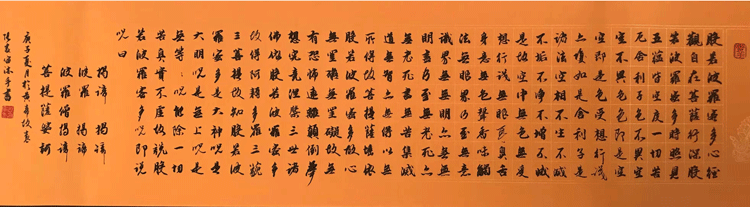 般若波羅蜜多心經
觀自在菩薩行深般
若波羅蜜多時照見
五蘊皆空度一切苦
厄舍利子色不異空
空不異色色即是空
空即是色受想行識
亦復如是舍利子是
諸法空相不生不滅
不垢不淨不增不減
是故空中無色無受
想行識無眼耳鼻舌
身意無色聲香味觸
法無眼界乃至無意
識界無無明亦無無
明盡乃至無老死亦
無老死盡無苦集滅
道無智亦無得以無
所得故菩提薩埵依
般若波羅蜜多故心
無罣礙無罣礙故無
有恐怖遠離顛倒夢
想究竟涅槃三世諸
佛依般若波羅蜜多
故得阿耨多羅三藐
三菩提故知般若波
羅蜜多是大神咒是
大明咒是無上咒是
無等等咒能除一切
苦真實不虛故說般
若波羅蜜多咒即說
咒曰
揭諦 揭諦
波羅 揭諦
波羅僧揭諦
菩提薩婆訶
庚子夏月於